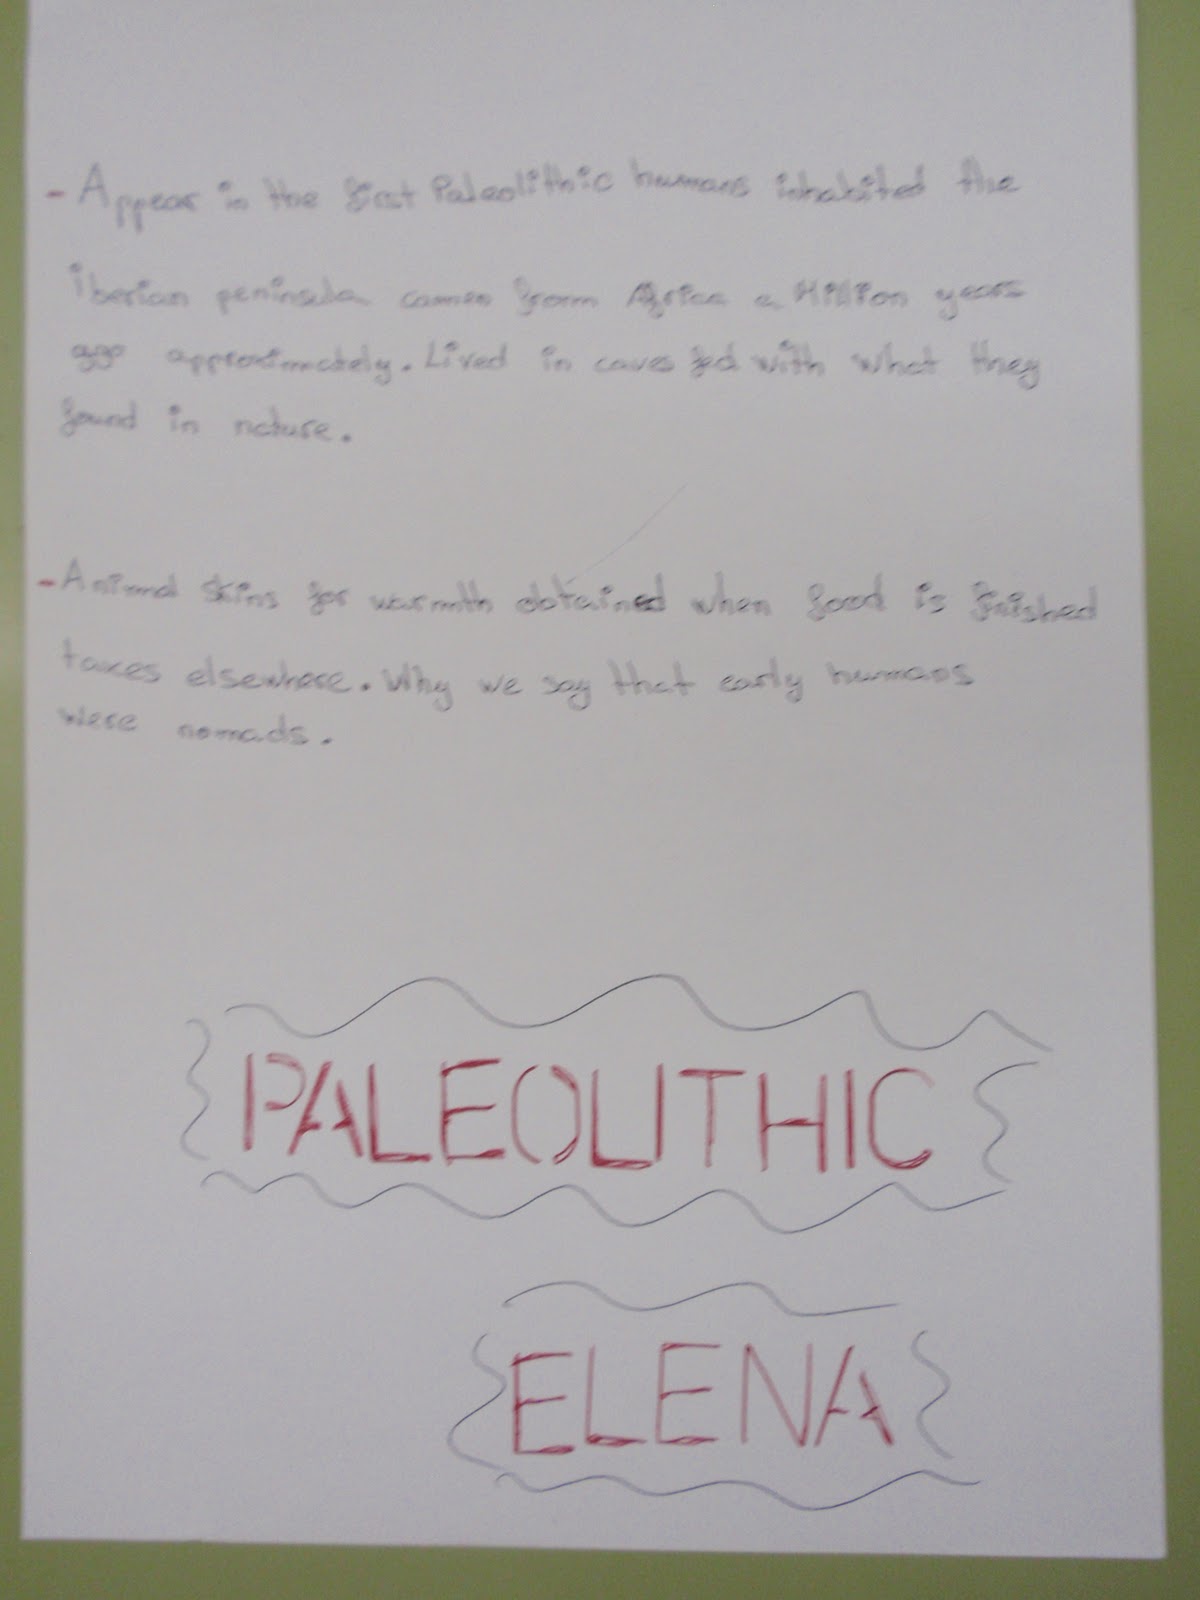 - Appear in the first Paleolithic humans inhabited the
iberian peninsula comen from Africa a Million years
ago approximately. Lived in caves fed with what they
found in nature.
- Animal skins for warmth obtained when food is finished
taxes elsewhere. Why we say that early humans
were nomads.
PALEOLITHIC
ELENA